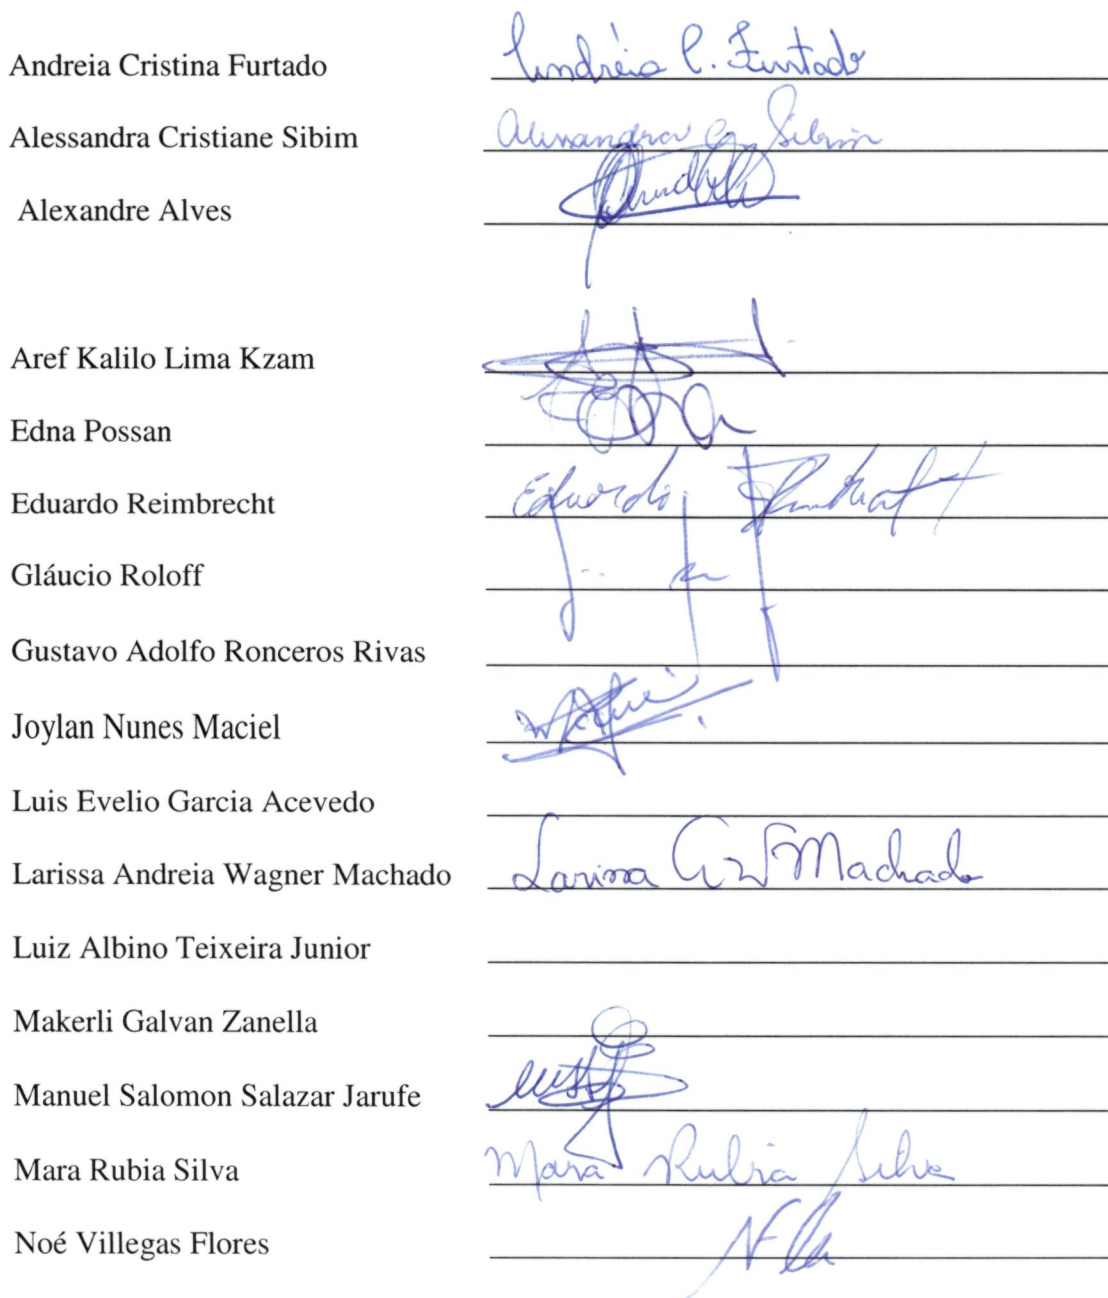 Andreia Cristina Furtado Andréia C. Furtado
Alessandra Cristiane Sibim Alessandra C. Sibim
Alexandre Alves
Aref Kalilo Lima Kzam
Edna Possan
Eduardo Reimbrecht Eduardo
Gláucio Roloff
Gustavo Adolfo Ronceros Rivas
Joylan Nunes Maciel
Luis Evelio Garcia Acevedo
Larissa Andreia Wagner Machado Larissa A W Machado
Luiz Albino Teixeira Junior
Makerli Galvan Zanella
Manuel Salomon Salazar Jarufe
Mara Rubia Silva Mara Rubia Silva
Noé Villegas Flores